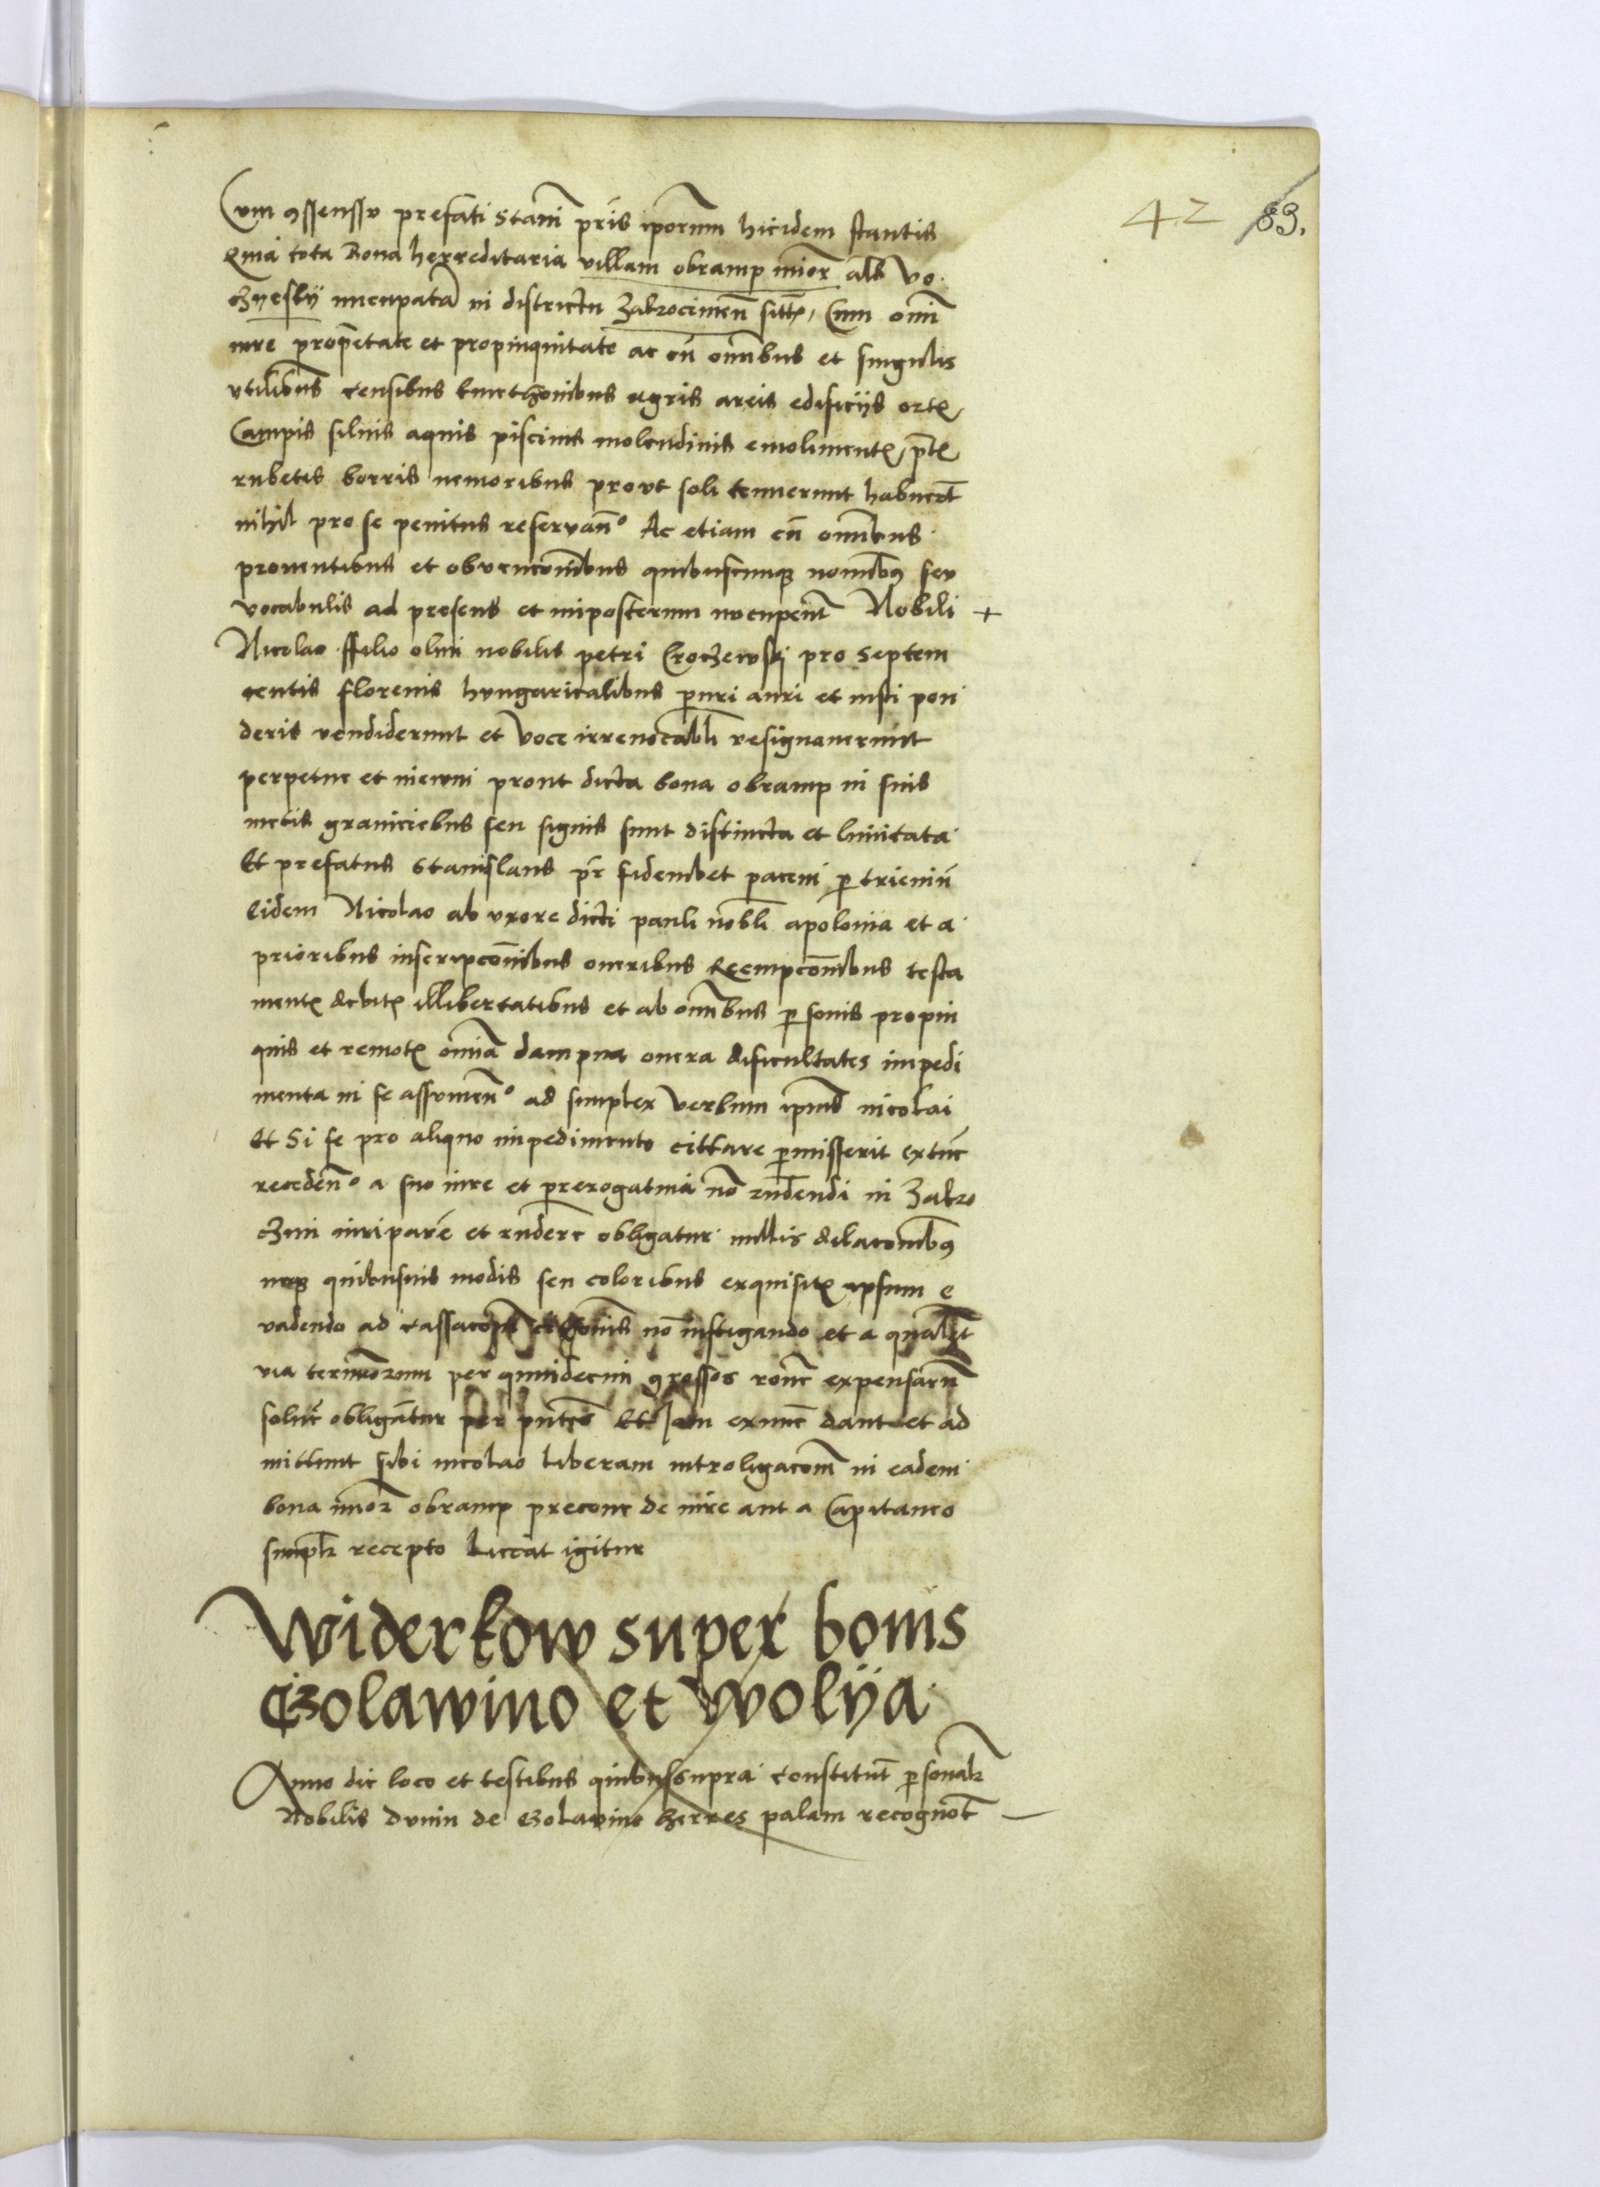 42 83.
Cum 9ssenssu prefati Stani pris iporum hicidem stantis
Quia tota Bona herreditaria villam obramp mior als Vo
chyesly nucupata in districtu Zakrocimen sitt, Cum omi
iure propetate et propinquitate ac cu omibus et singulis
vtilibus censibus kmethonibus agris areis edificijs ort
Campis siluis aquis piscinis molendinis emoliment, prt
rubetis borris nemoribus prout soli tenuerunt habuert
nihil pro se penitus reservan° Ac etiam cu omibus
prouentibus et obvencombus quibuscunq nomib9 seu
vocabulis ad presens et inposterum nucupent Nobili +
Nicolao ffilio olim nobilis petri Croczewski pro Septem
centis florenis hungaricalibus puri auri et iusti pon
deris vendiderunt et Voce irreuocabli resignauerunt
perpetue et in ewm prout dicta bona obramp in suis
metis graniciebus seu signis sunt distincta et limitata
Et prefatus Stanislaus pr fidembet pacem p trieniu
Eidem Nicolao ab vxore dicti pauli nobli apolonia et a
prioribus inscripcombus oneribus Reempcombus testa
ment debit illibertatibus et ab omibus psonis propin
quis et remot omia dampna onera dificultates impedi
menta in se assumen° ad simplex verbum ipius nicolai
Et Si se pro aliquo impedimento cittare pmisserit extuc
receden° a suo iure et prerogatiua no rndendi in Zakro
czim iuriparē et rndere obligatur nullis dilacomb9
neq quibusuis modis seu coloribus exquisit ipsum e
vadendo ad cassacom no instigando et a qualt
via terminorum per quindecim grossos roni expensaru
soluc obligatur per pntes Et Jam exnuc dant et ad
mittunt sibi nicolao liberam introligacom in eadem
bona mior obramp precone de iure aut a Capitaneo
simplr recepto Liceat igitur
Widerkow super bonis
Golawino et Wolija
Anno die loco et testibus quibussupra constitut psonalr
Nobilis Dunin de Golawino herres palam recognot